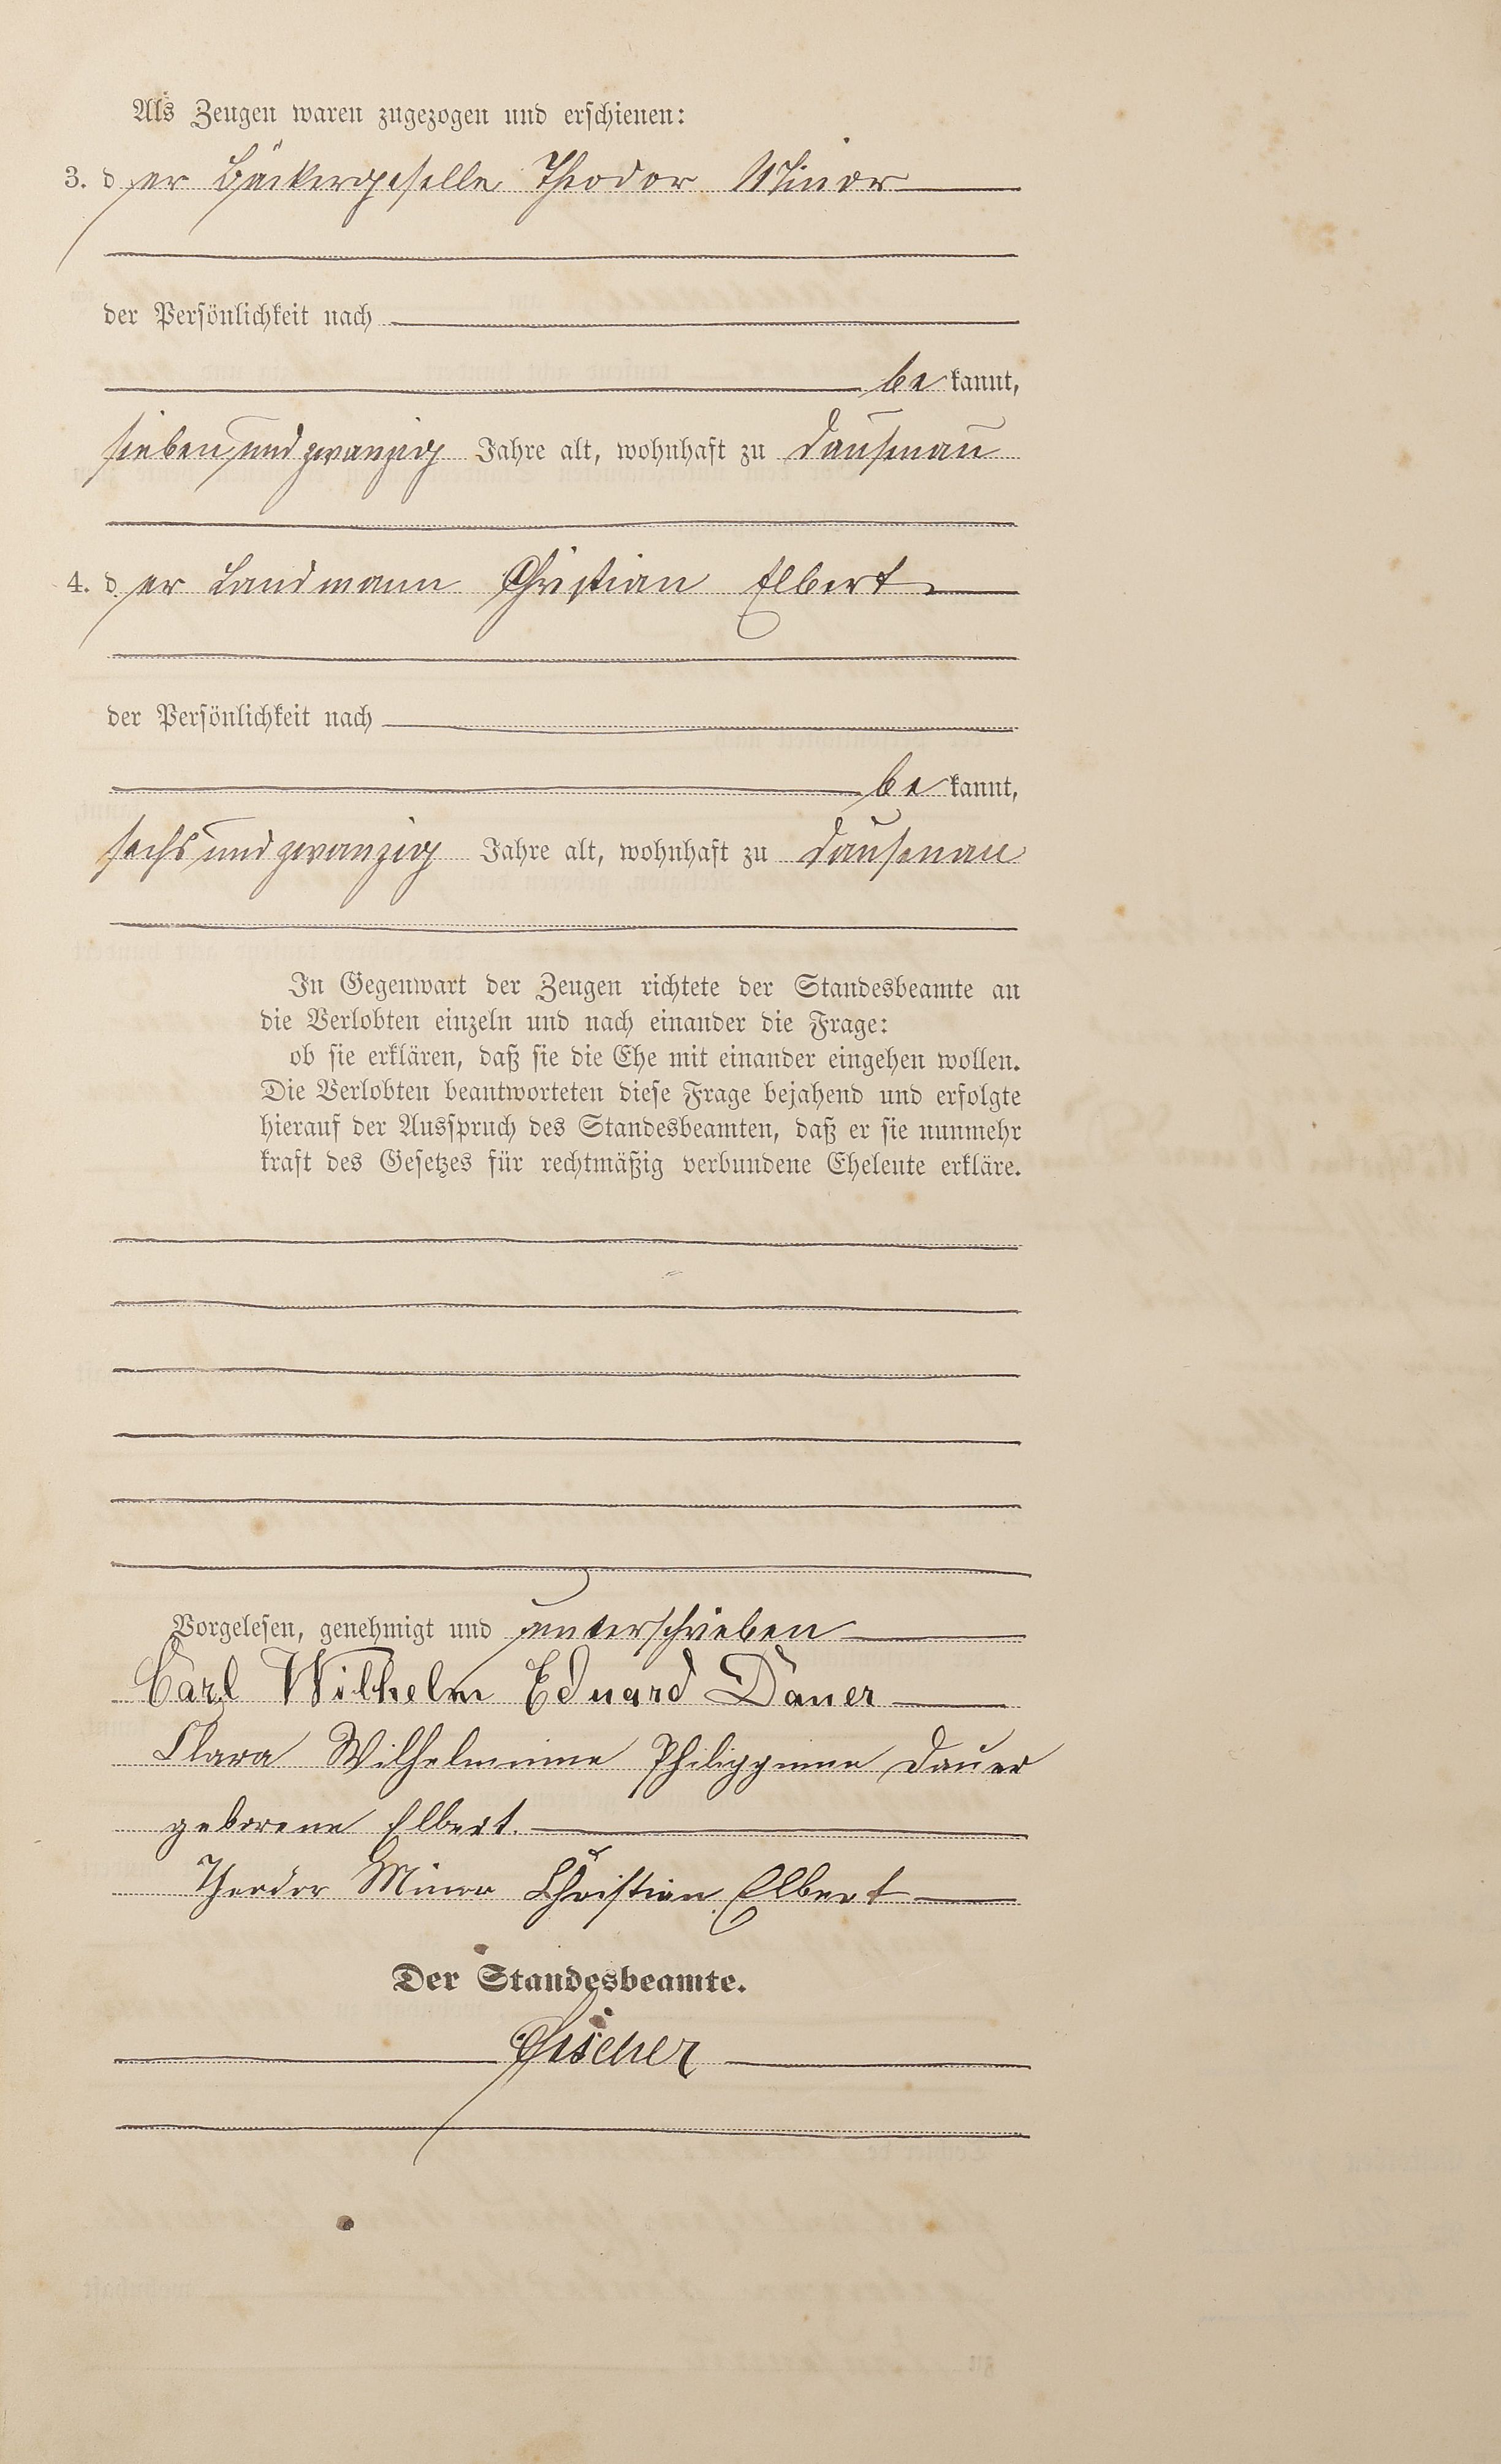 Als Zeugen waren zugezogen und erschienen:
3. der Bäckergeselle Theodor Minor
der Persönlichkeit nach
bekannt,
siebenundzwanzig Jahre alt, wohnhaft zu Dausenau
4. der Landmann Christian Elbert
der Persönlichkeit nach
bekannt,
sechsundzwanzig Jahre alt, wohnhaft zu Dausenau
In Gegenwart der Zeugen richtete der Standesbeamte an
die Verlobten einzeln und nach einander die Frage:
ob sie erklären, daß sie die Ehe mit einander eingehen wollen.
Die Verlobten beantworteten diese Frage bejahend und erfolgte
hierauf der Ausspruch des Standesbeamten, daß er sie nunmehr
kraft des Gesetzes für rechtmäßig verbundene Eheleute erkläre.
Vorgelesen, genehmigt und unterschrieben
Carl Wilhelm Eduard Dauer
Clara Wilhelmine Philippine Dauer
geborene Elbert.
Theodor Minor Christian Elbert
Der Standesbeamte.
Fischer